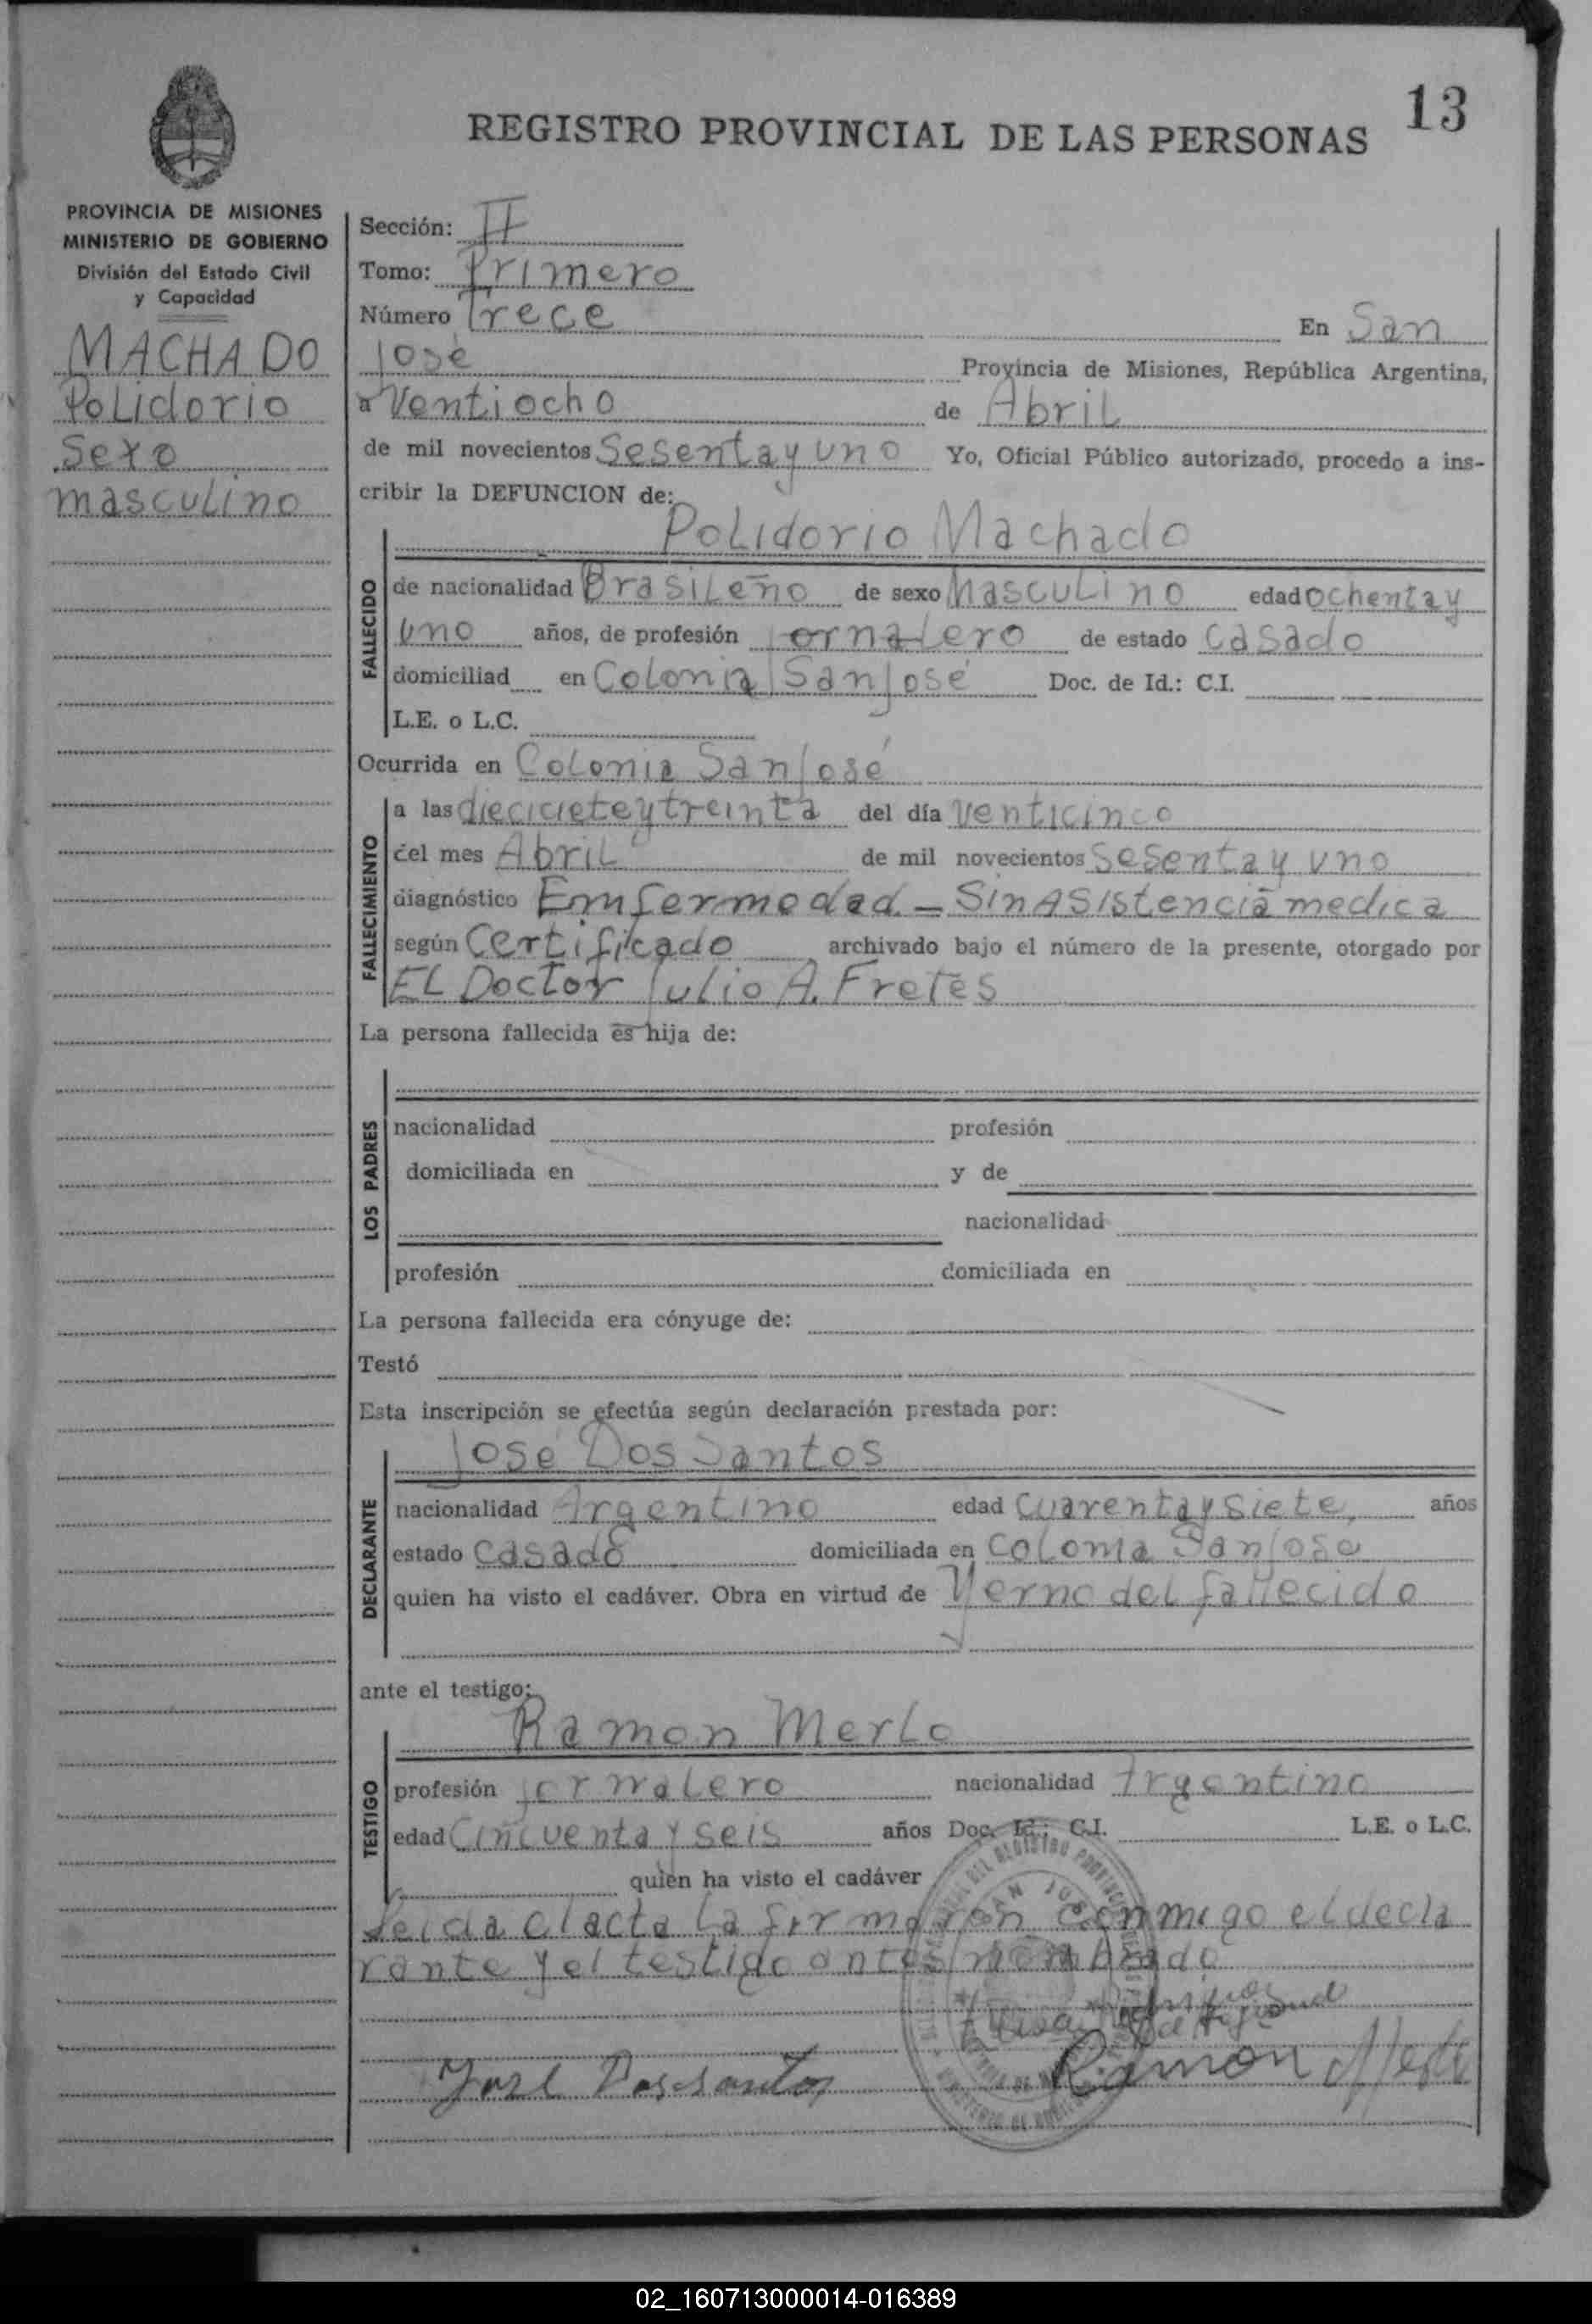 13
REGISTRO PROVINCIAL DE LAS PERSONAS
PROVINCIA DE MISIONES
MINISTERIO DE GOBIERNO
División del Estado Civil
y Capacidad
MACHADO
Polidorio
Sexo
masculino
Sección: II
Tomo: Primero
Número Trece En San
José Provincia de Misiones, República Argentina,
a Ventiocho de Abril
de mil novecientos Sesenta y uno Yo, Oficial Público autorizado, procedo a ins-
cribir la DEFUNCION de:
Polidorio Machado
FALLECIDO
de nacionalidad Brasileño de sexo Masculino edad ochenta y
uno años, de profesión Jornalero de estado Casado
domiciliad en Colonia San José Doc. de Id.: C.I.
L.E. o L.C.
Ocurrida en Colonia San José
FALLECIMIENTO
a las dieciciete y treinta del día venticinco
del mes Abril de mil novecientos Sesenta y uno
diagnóstico Emfermedad - Sin Asistencia medica
según Certificado archivado bajo el número de la presente, otorgado por
EL Doctor Julio A. Fretes
La persona fallecida es hija de:
LOS PADRES
nacionalidad profesión
domiciliada en y de
nacionalidad
profesión domiciliada en
La persona fallecida era cónyuge de:
Testó
Esta inscripción se efectúa según declaración prestada por:
José Dos Santos
DECLARANTE
nacionalidad Argentino edad Cuarenta y Siete, años
estado Casado domiciliada en Colonia San José
quien ha visto el cadáver. Obra en virtud de Yerno del fallecido
ante el testigo:
Ramon Merlo
TESTIGO
profesión jornalero nacionalidad Argentino
edad Cincuenta y seis años Doc. Id.: C.I. L.E. o L.C.
quien ha visto el cadáver
Leida el acta la firmaron conmigo el decla
rante y el testigo antes nombrado
José Dos santos Ramon Merlo
02_160713000014-016389